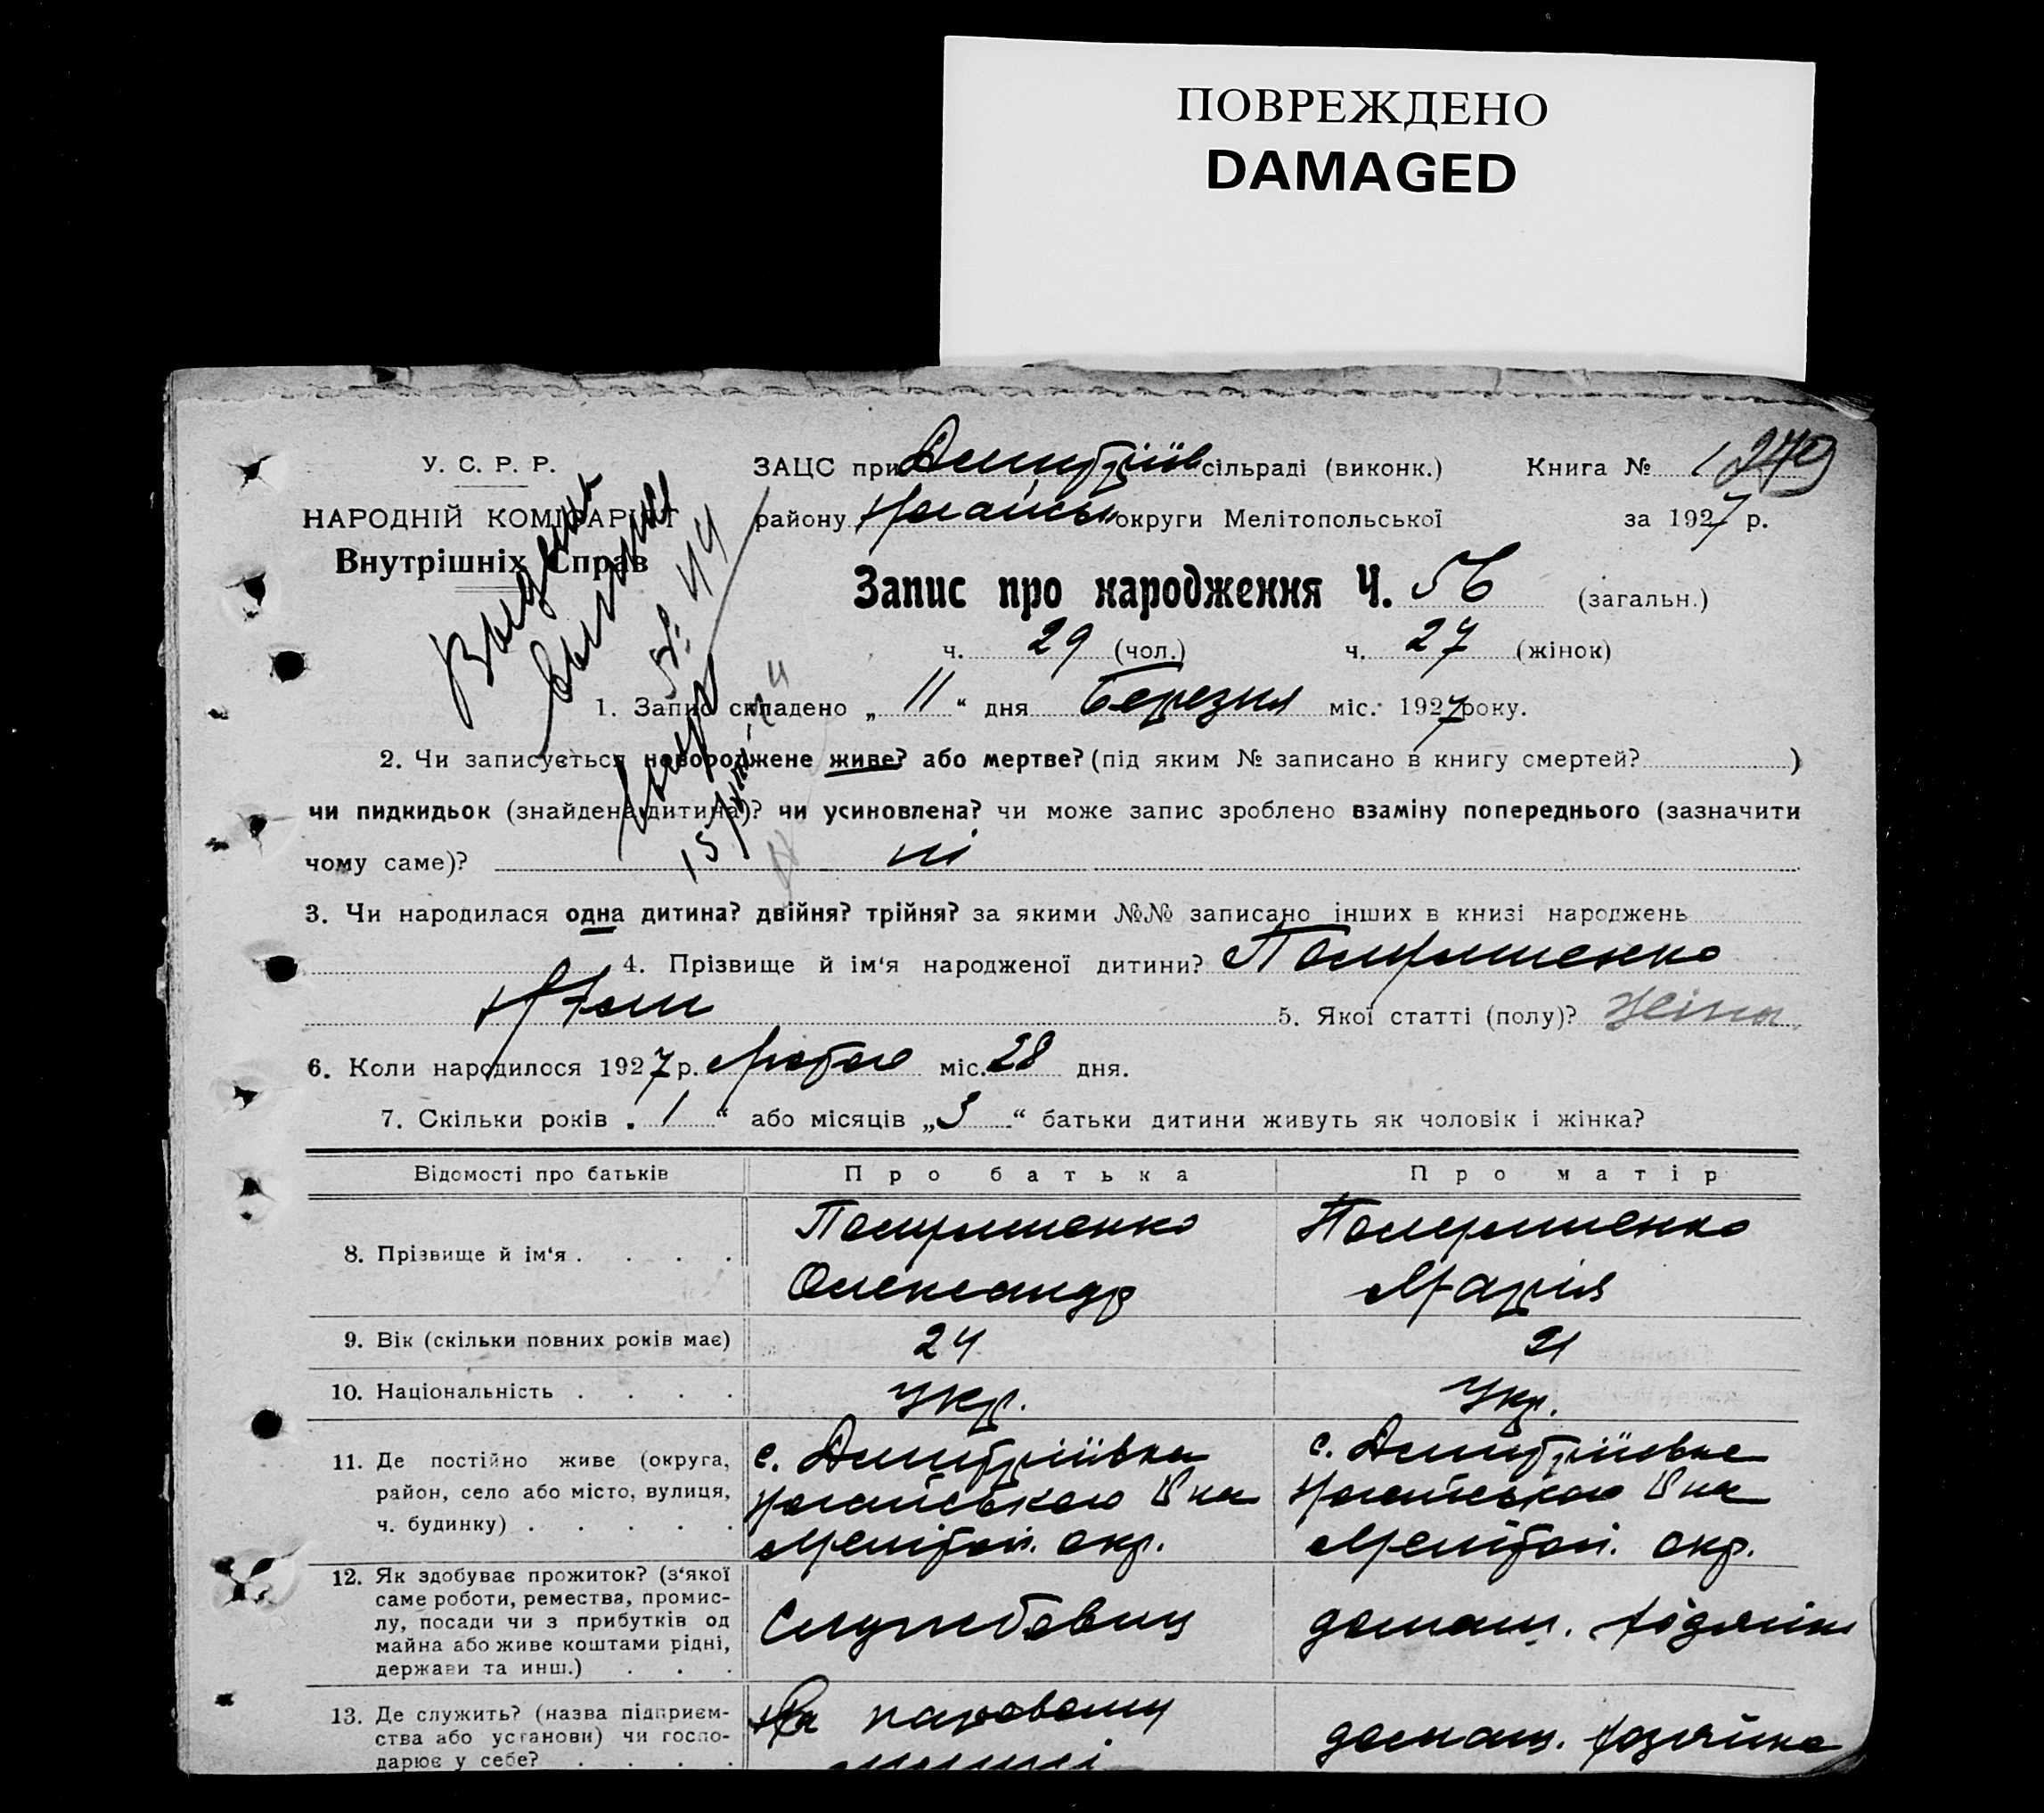 ПОВРЕЖДЕНО
DAMAGED
У. С. Р. Р.
НАРОДНІЙ КОМІСАРІЯТ
Внутрішніх Справ
ЗАЦС при Дмитріїв сільраді (виконк.) Книга № 1 279
району Ногайськ округи Мелітопольської за 1927 р.
Запис про народження Ч. 56 (загальн.)
ч. 29 (чол.) ч. 27 (жінок)
1. Запис складено „ 11 “ дня Березня міс. 1927 року.
2. Чи записується новороджене живе? або мертве? (під яким № записано в книгу смертей? )
чи пидкидьок (знайдена дитина)? чи усиновлена? чи може запис зроблено взаміну попереднього (зазначити
чому саме)? ні
3. Чи народилася одна дитина? двійня? трійня? за якими №№ записано інших в книзі народжень
4. Прізвище й ім‘я народженої дитини?
5. Якої статті (полу)? Жіноч.
6. Коли народилося 1927 р. Лютого міс. 28 дня.
7. Скільки років „ 1 “ або місяців „ 3 “ батьки дитини живуть як чоловік і жінка?
Відомості про батьків Про батька Про матір
8. Прізвище й ім‘я
Олександр Марія
9. Вік (скільки повних років має) 24 21
10. Національність Укр. Укр.
11. Де постійно живе (округа, район, село або місто, вулиця, ч. будинку)
с. Дмитріївка с. Дмитріївка
Ногайського Р на Ногайського Р на
Меліт. окр. Меліт. окр.
12. Як здобуває прожиток? (з‘якої
саме роботи, ремества, промис-
лу, посади чи з прибутків од
майна або живе коштами рідні,
держави та инш.)
Службовец домаш. хозяйка
13. Де служить? (назва підприєм-
ства або установи) чи госпо-
дарює у себе?
На паровому домаш. хозяйка
млині
Выдана
выпись